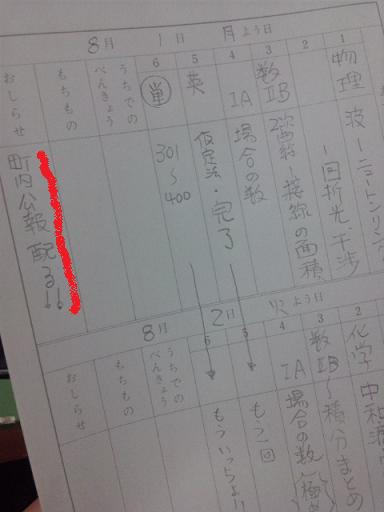 8月 1日 月よう日
1 物理 波ーニュートンリング
ー回折光、干渉
2
3 数IIB 2次関数ー接線の面積
4 IA 場合の数
5 英 仮定法・完了
6 単 301〜400
うちでのべんきょう
もちもの
おしらせ 町内公報 配る!!
8月 2日 火よう日
2 化学
3 数IIB 〜積分まとめ
4 IA 場合の数
5 もう1回
6 もういっちょ!!
うちでのべんきょう
もちもの
おしらせ